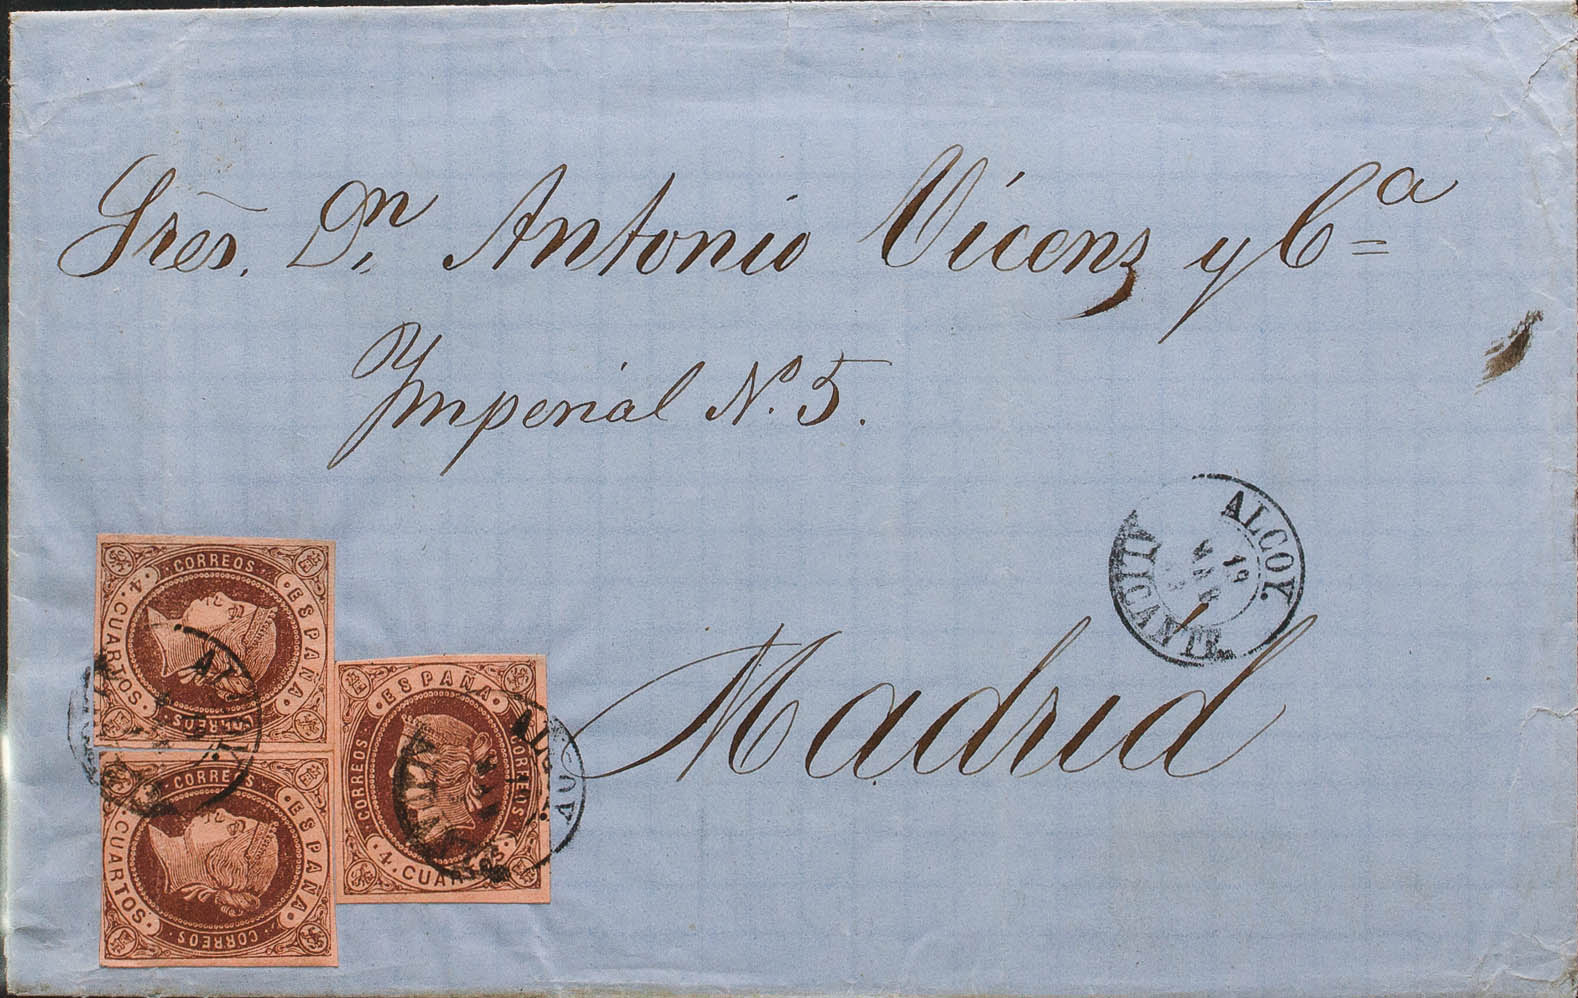 Sres. Dn. Antonio Vicens y Cª
Imperial N.º 5.
Madrid
ALCOY.
19
ALICANTE.
CORREOS
ESPAÑA
CORREOS
4. CUARTOS.
CORREOS
ESPAÑA
CORREOS
CUARTOS
ESPAÑA
CORREOS
CORREOS
4. CUARTOS